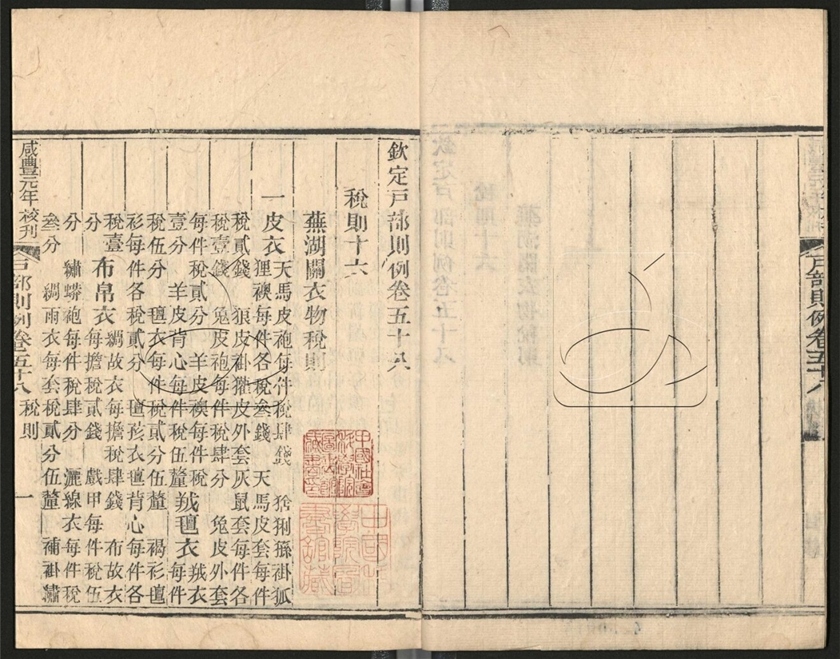 戶部則例卷五十八
欽定戶部則例卷五十八
稅則十六
蕪湖關衣物稅則
一皮衣
天馬皮袍每件稅肆錢 猞猁猻褂狐
狸襖每件各稅叁錢 天馬皮套每件
稅貳錢 狼皮褂獺皮外套灰鼠套每件各
稅壹錢 兔皮袍每件稅肆分 兔皮外套
每件稅貳分 羊皮襖每件稅
壹分 羊皮背心每件稅伍釐
絨氊衣
絨衣
每件
稅伍分 氊衣每件稅貳分伍釐 褐衫氊
衫每件各稅貳分 氊孩衣氊背心每件各
稅壹
分
布帛衣
綢故衣每擔稅肆錢 布故衣
每擔稅貳錢 戲甲每件稅伍
分 繡蟒袍每件稅肆分 灑線衣每件稅
叁分 綢雨衣每套稅貳分伍釐 補褂繡
咸豐元年校刊
戶部則例卷五十八 稅則 一